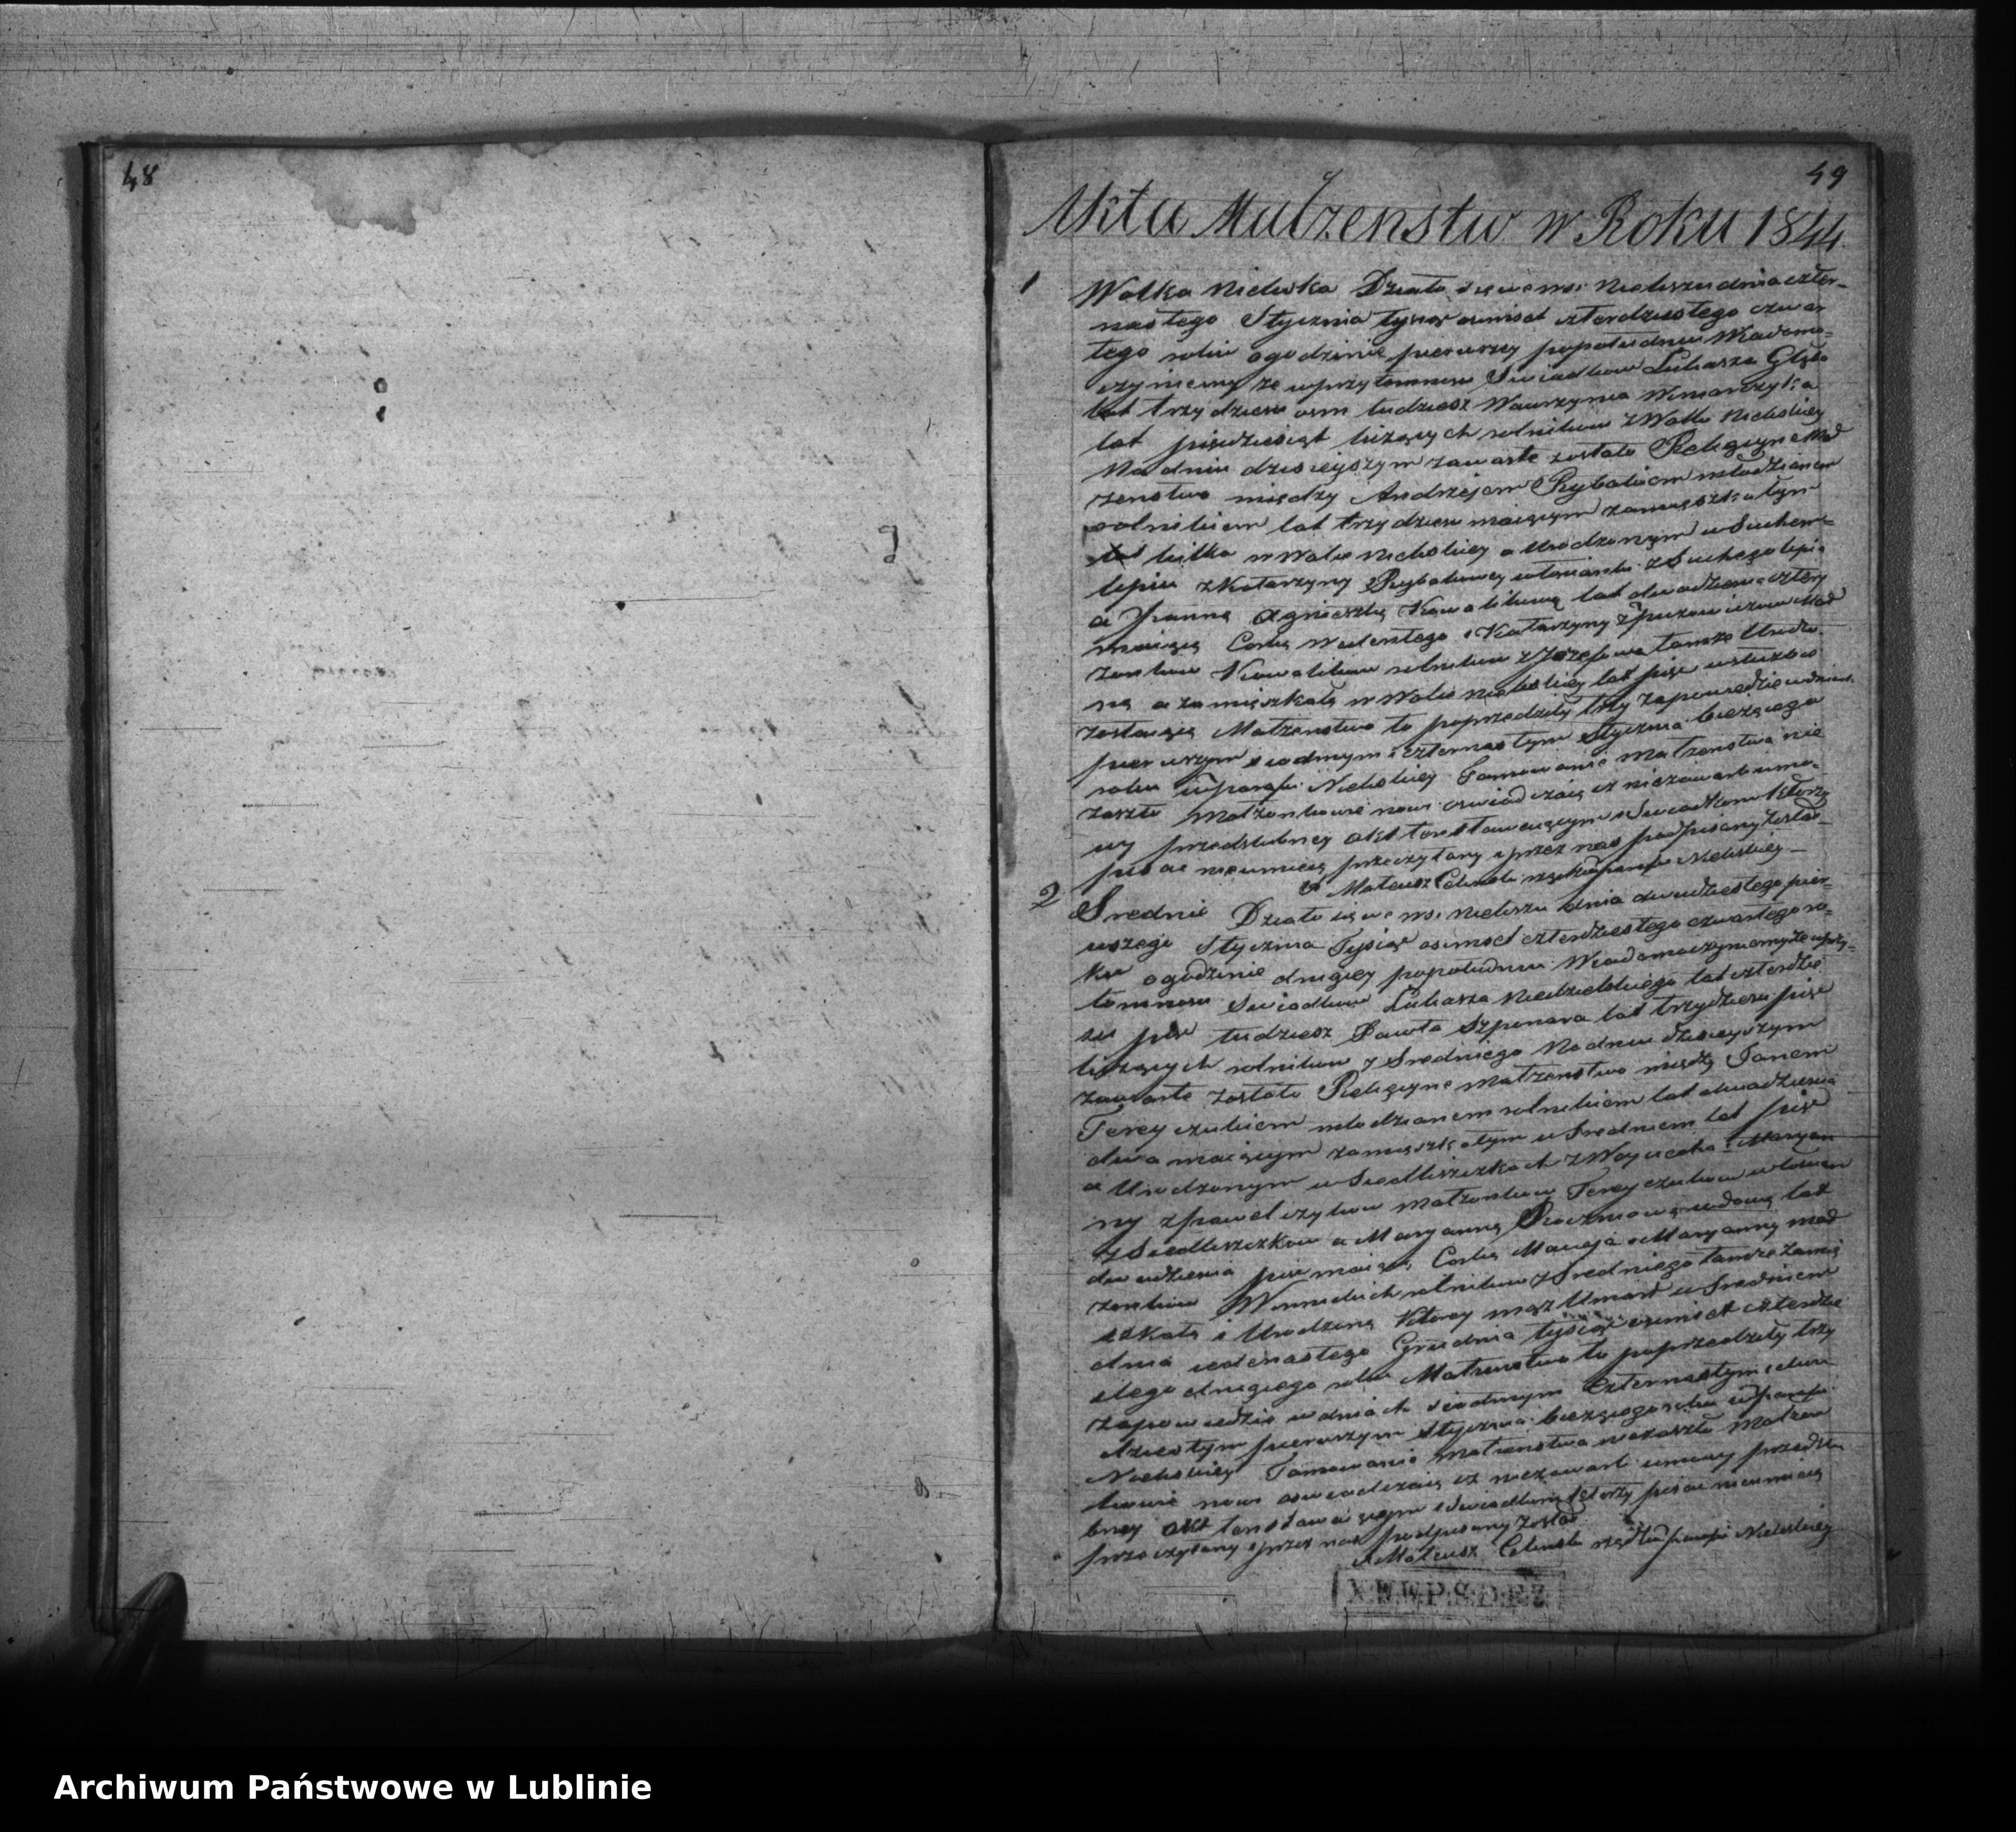 48
49
Akta Malzenstw w Roku 1844
1
Wolka Nieliska Działo się we wsi Nieliszu dnia czter-
nastego Stycznia tysiąc ośmset czterdziestego czwar
tego roku o godzinie pierwszey popołudniu Wiadomo-
czyniemy że w przytomnosci Swiadkow Łukasza
lat trzydziesci osm tudziesz Wawrzynca
lat pięcdziesiąt liczących rolnikow z Wolki Nieliskiey
Na dniu dzisieyszym zawarte zostało Religiyne Mał
zenstwo między Andrzejem Rybakiem młodzianem
rolnikiem lat trzydziesci maiącym zamięszkałym
kilka w Wolce Nieliskiey a Urodzonym w Suchem-
lipiu z Katarzyny Rybakowey z Suchegolipia
a Panną Agnieszką Kowalikowną lat dwadziescia cztery
maiącą Corką Walentego i Katarzyny z Mał
zonkow Kowalikow rolnikow z Jozefowa tamze Urodzo-
ną a zamięszkałą w Wolce Nieliskiey lat pięc w służbie
zostaiącą Małzenstwo to poprzedziły trzy zapowiedzie w dniach
pierwszym siodmym i czternastym Stycznia biezącego
roku w parafii Nieliskiey Tamowanie małzenstwa nie
zaszło Małzonkowie nowi oswiadczaią iz niezawarli umo-
wy przedslubney akt ten stawaiącym i Swiadkom ktorzy
pisac nieumieią przeczytany i przez nas podpisany został
X Mateusz rządca parafii Nieliskiey
2
Srednie Działo się we wsi Nieliszu dnia dwudziestego pier-
wszego Stycznia Tysiąc osmset czterdziestego czwartego ro-
ku o godzinie drugiey popołudniu Wiadomo czyniemy ze w przy-
tomnosci Swiadkow Łukasza Niedzielskiego lat czterdzie
sci pięc tudziesz Pawła Szponara lat trzydziesci pięc
liczących rolnikow z Sredniego Na dniu dzisieyszym
zawarte zostało Religiyne małzenstwo między Janem
młodzianem rolnikiem lat dwadziescia
dwa maiącym zamięszkałym w Sredniem lat pięc
a Urodzonym w Siedliszczkach z Woyciecha i Maryan
ny z małzonkow
z Siedliszczkow a Maryanną wdową lat
dwadziescia pięc maiącą Corką Macieja i Maryanny mał
zonkow rolnikow z Sredniego tamze zamię
szkałą i Urodzoną Ktorey mąz Umarł w Sredniem
dnia iedenastego Grudnia tysiąc osmset czterdzie
stego drugiego roku Małzenstwo to poprzedziły trzy
zapowiedzie w dniach siodmym czternastym i dwu
dziestym pierwszym Stycznia biezącego roku w parafii
Nieliskiey Tamowanie małzenstwa niezaszło Małzon
kowie nowi oswiadczaią iz niezawarli umowy przedslu
bney akt ten stawaiącym i Swiadkom ktorzy pisac nieumieią
przeczytany i przez nas podpisany został
X Mateusz rządca parafii Nieliskiey
Archiwum Państwowe w Lublinie